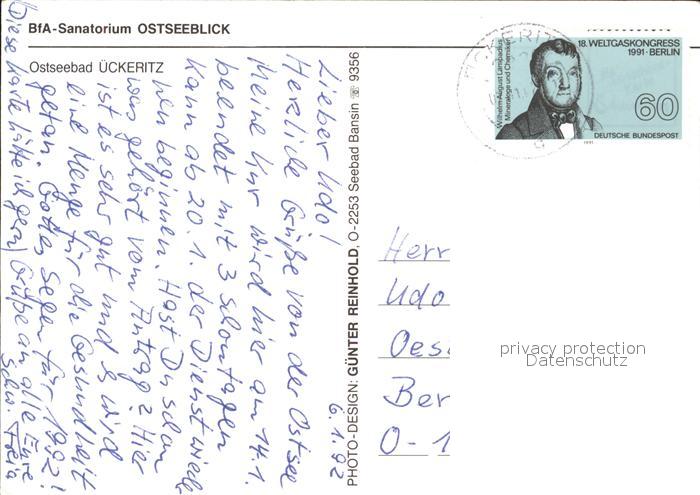 BfA-Sanatorium OSTSEEBLICK
Ostseebad ÜCKERITZ
6.1.92
Lieber Udo!
Herzliche Grüße von der Ostsee
Meine Kur wird hier am 14.1.
beendet mit 3 schontagen
kann ab 20.1. der Dienst wieder
beginnen. Hast Du schon
was gehört vom Antrag? Hier
ist es sehr gut und es wird
eine Menge für die Gesundheit
getan. Gottes Segen für 1992!
Diese Karte hätte ich gern) Grüße an alle Eure
Schw.
PHOTO-DESIGN: GÜNTER REINHOLD, O-2253 Seebad Bansin ☏ 9356
ÜCKERITZ
Wilhelm August Lampadius
Mineraloge und Chemiker
18. WELTGASKONGRESS
1991·BERLIN
60
DEUTSCHE BUNDESPOST
1991
Herr
Udo
Oes
Ber
O-1
privacy protection
Datenschutz